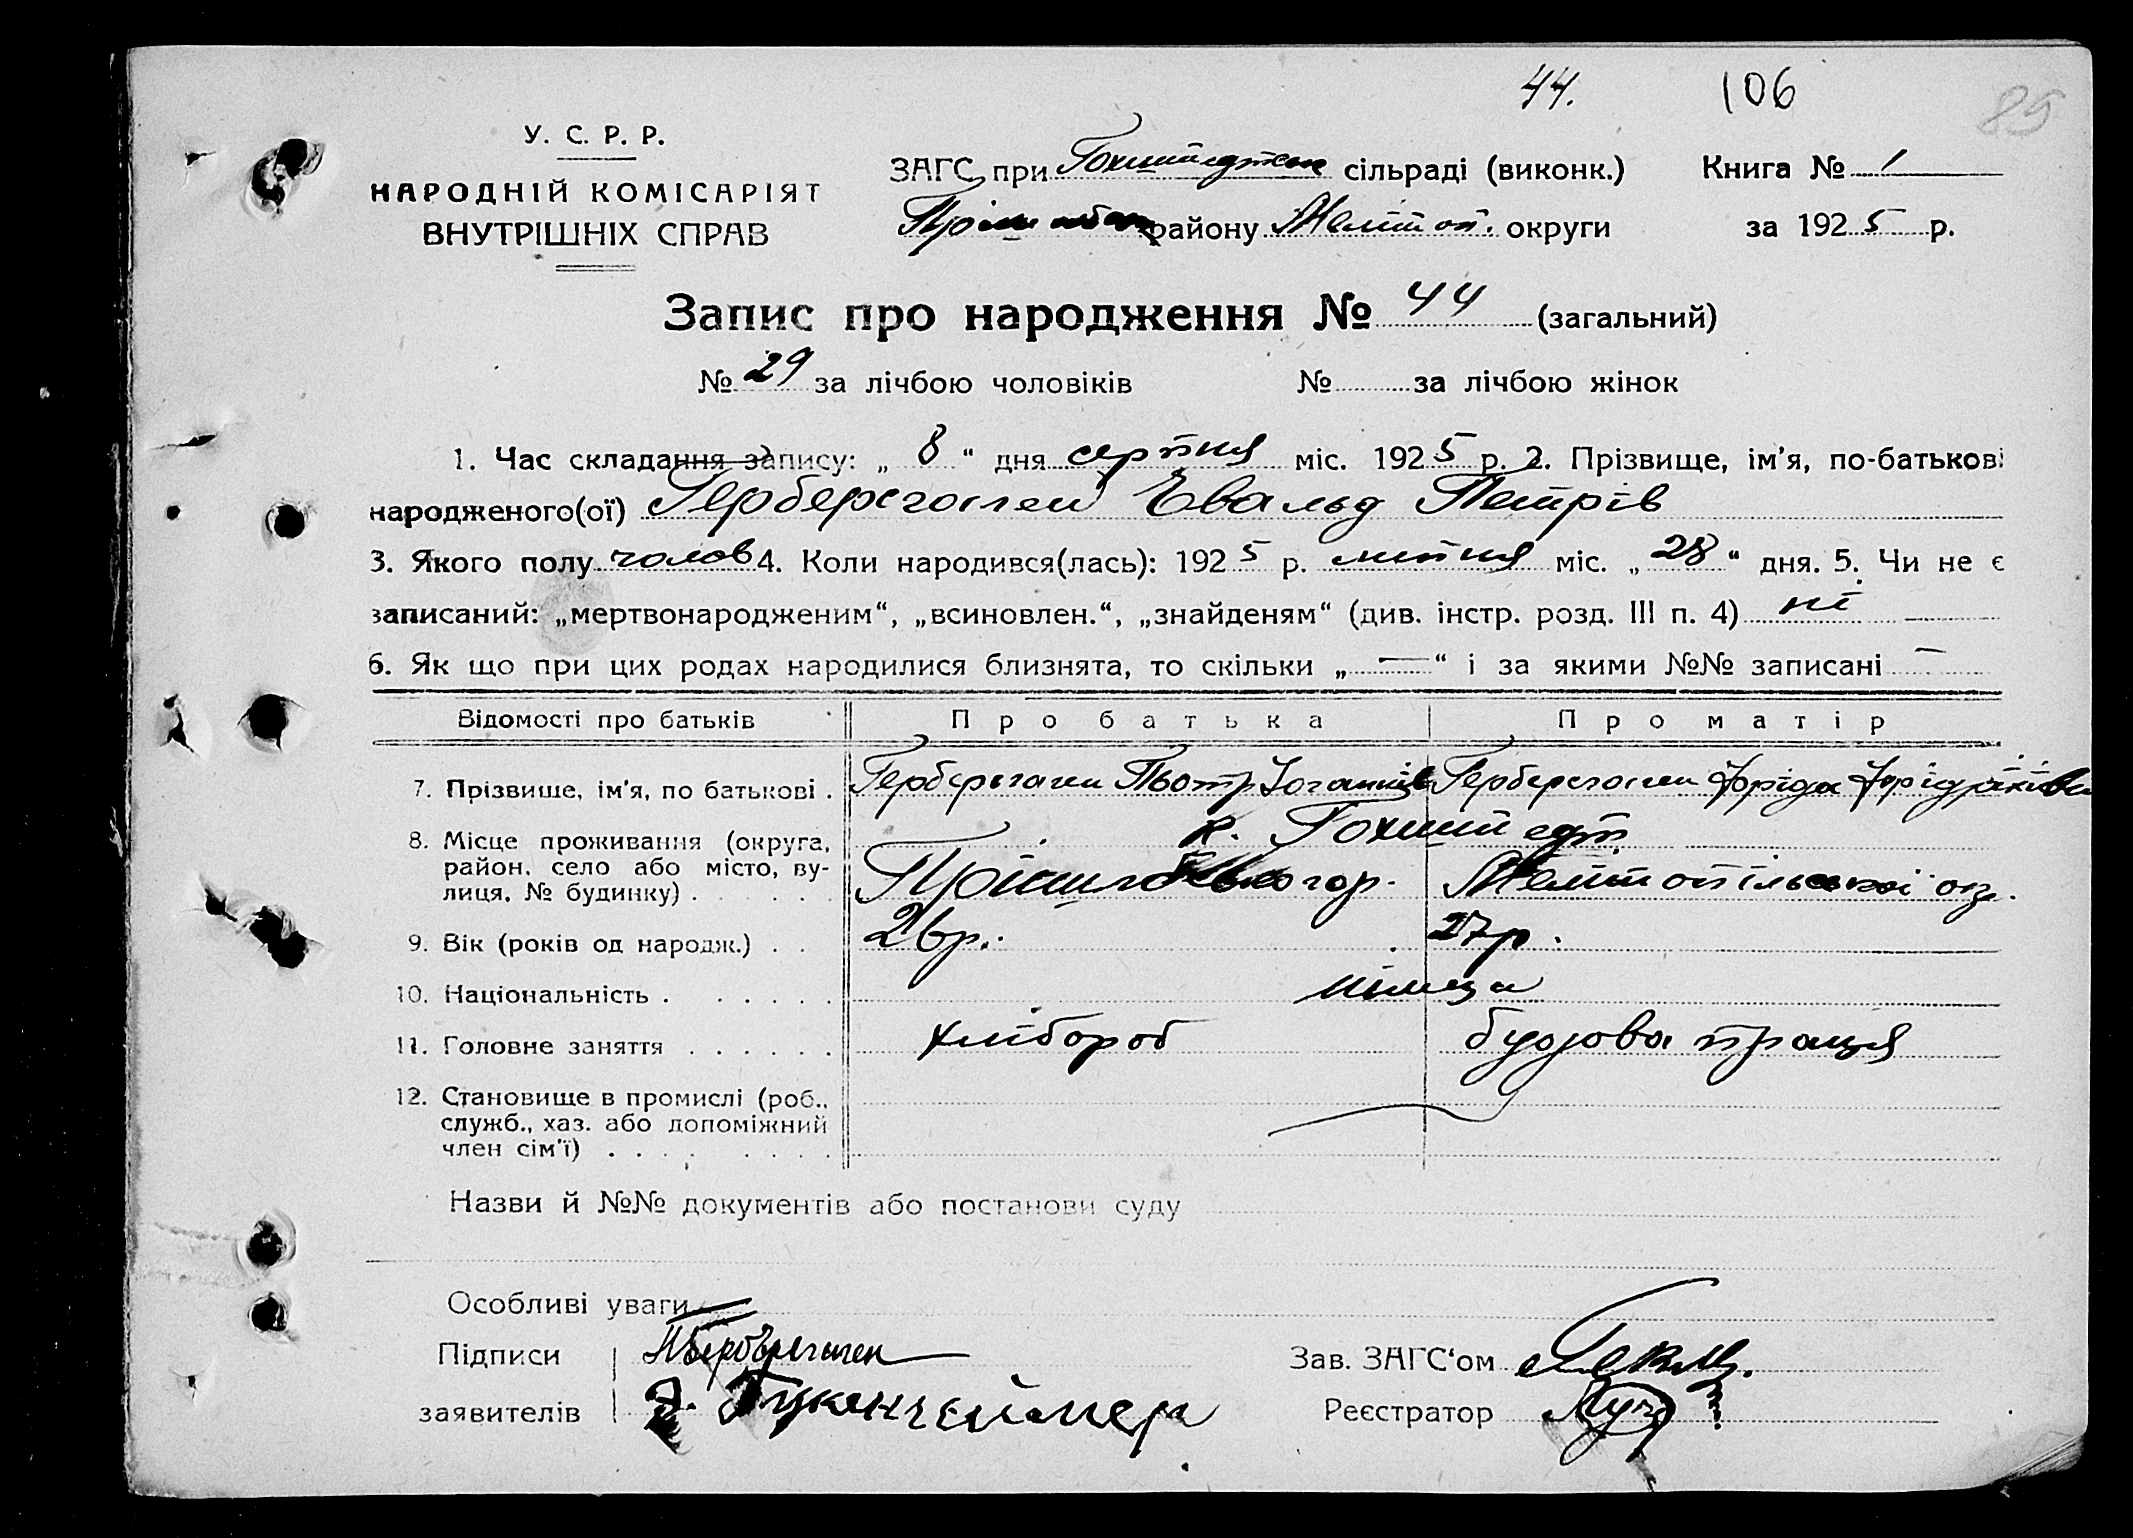 44. 106 85
У. С. Р. Р.
НАРОДНІЙ КОМІСАРІЯТ
ВНУТРІШНІХ СПРАВ
ЗАГС при Гохштедтськ сільраді (виконк.) Книга № 1
району Меліт оп. округи за 1925 р.
Запис про народження № 44 (загальний)
№ 29 за лічбою чоловіків № за лічбою жінок
1. Час складання запису: „ 8 “ дня серпня міс. 1925 р. 2. Прізвище, ім'я, по-батькові
народженого(ої) Гербергаген Евальд Петрів
3. Якого полу чолов 4. Коли народився(лась): 1925 р. липня міс. „ 28 “ дня. 5. Чи не є
записаний: „мертвонародженим“, „всиновлен.“, „знайденям“ (див. інстр. розд. III п. 4) ні
6. Як що при цих родах народилися близнята, то скільки „ — “ і за якими №№ записані —
Відомості про батьків Про батька Про матір
7. Прізвище, ім'я, по батькові . Гербергаген Пьотр Йоганнів Гербергаген Фріда Фрідрихівна
8. Місце проживання (округа, к. Гохштедт
район, село або місто, ву-
лиця, № будинку) . . . . . . Мелітопільської ок.
9. Вік (років од народж.) . . 26 р. 27 р.
10. Національність . . . . . . німца
11. Головне заняття . . . . . . хлібороб будова праця
12. Становище в промислі (роб.,
служб., хаз. або допоміжний
член сім'ї) . . . . . . . .
Назви й №№ документів або постанови суду
Особливі уваги
Підписи Зав. ЗАГС'ом
заявителів Реєстратор